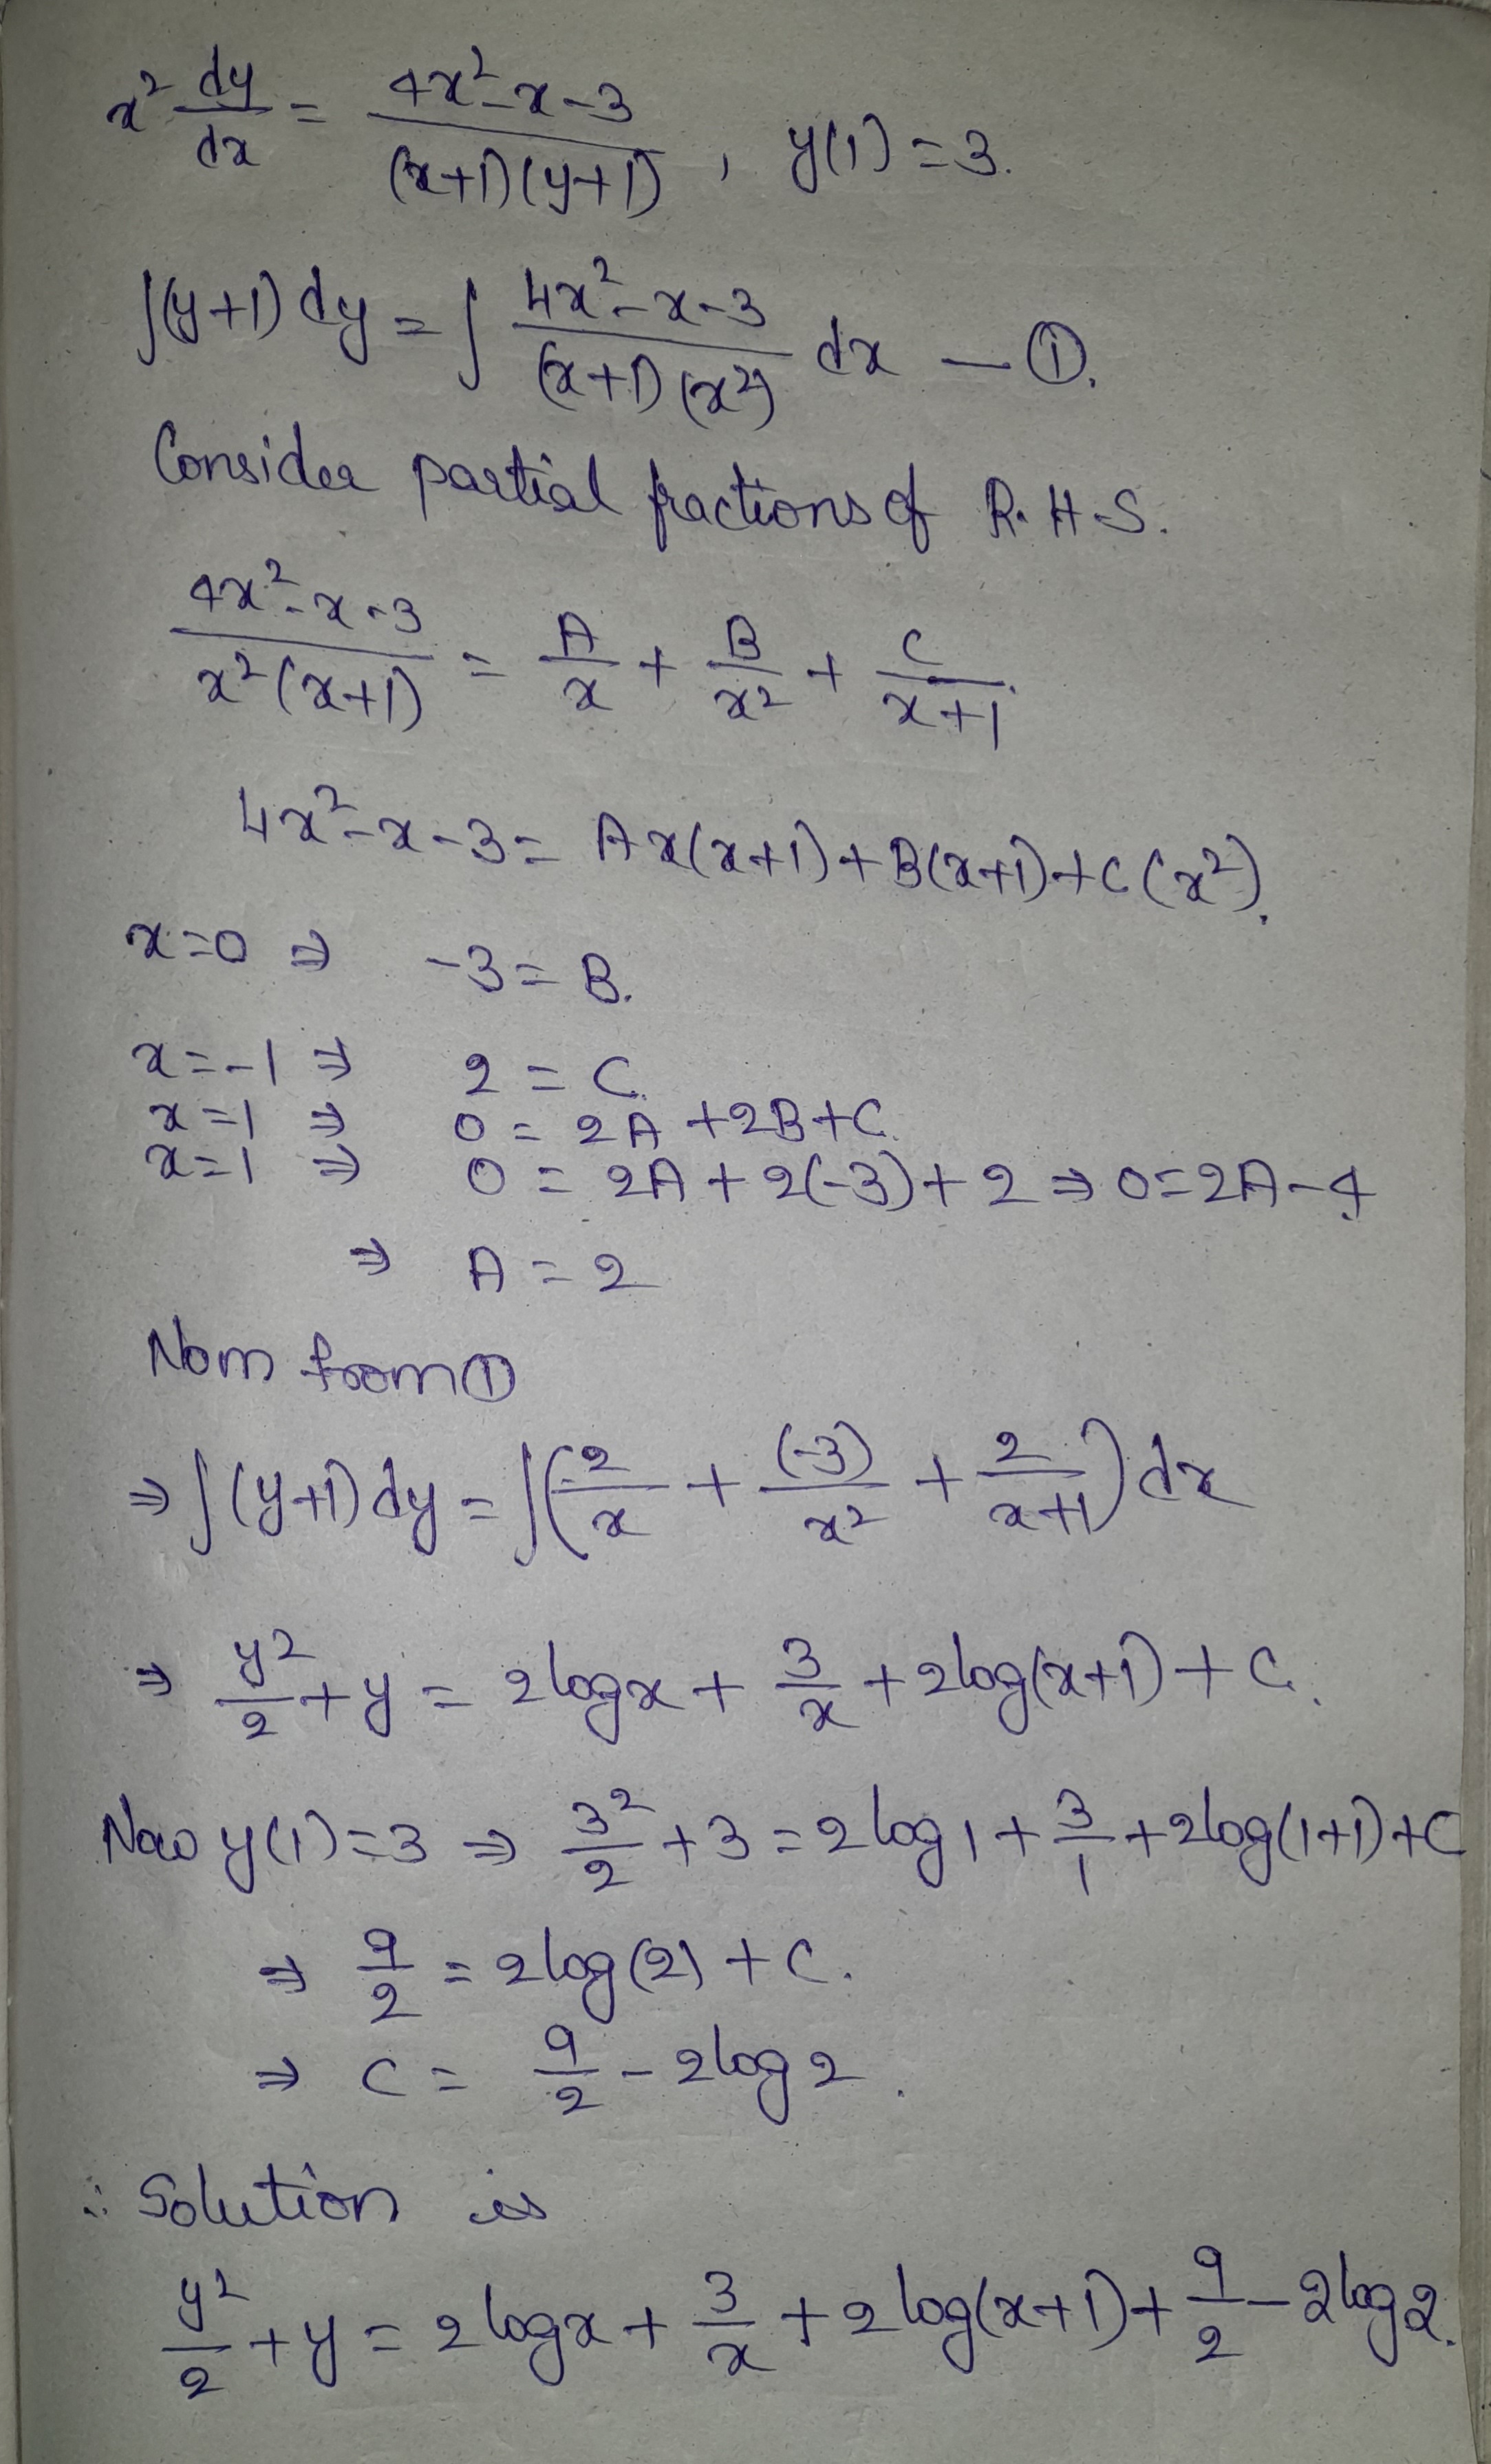 x² dy/dx = (4x²-x-3)/((x+1)(y+1)) , y(1)=3.
∫(y+1) dy = ∫ (4x²-x-3)/((x+1)(x²)) dx — ①.
Consider partial fractions of R.H.S.
(4x²-x-3)/(x²(x+1)) = A/x + B/x² + C/(x+1).
4x²-x-3 = Ax(x+1)+B(x+1)+C(x²).
x=0 ⇒ -3 = B.
x=-1 ⇒ 2 = C.
x=1 ⇒ 0 = 2A+2B+C.
x=1 ⇒ 0 = 2A+2(-3)+2 ⇒ 0=2A-4
⇒ A = 2
Now from ①
⇒ ∫(y+1) dy = ∫(2/x + (-3)/x² + 2/(x+1)) dx
⇒ y²/2 + y = 2logx + 3/x + 2log(x+1) + C.
Now y(1)=3 ⇒ 3²/2 + 3 = 2log1 + 3/1 + 2log(1+1)+C
⇒ 9/2 = 2log(2) + C.
⇒ C = 9/2 - 2log2.
∴ Solution is
y²/2 + y = 2logx + 3/x + 2log(x+1) + 9/2 - 2log2.